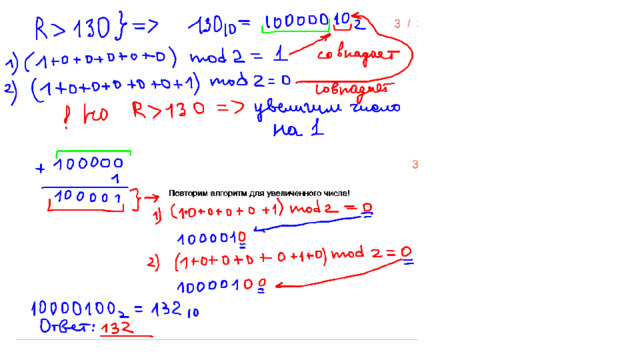 R>130} => 130₁₀ = 10000010₂
3 /
1) (1+0+0+0+0+0) mod 2 = 1 совпадает
2) (1+0+0+0+0+0+1) mod 2 = 0 совпадает
! но R>130 => увеличим число
на 1
+ 100000
1
3
100001 } → Повторим алгоритм для увеличенного числа!
1) (1+0+0+0+0+1) mod 2 = 0
1000010
2) (1+0+0+0+0+1+0) mod 2 = 0
10000100
10000100₂ = 132₁₀
Ответ: 132